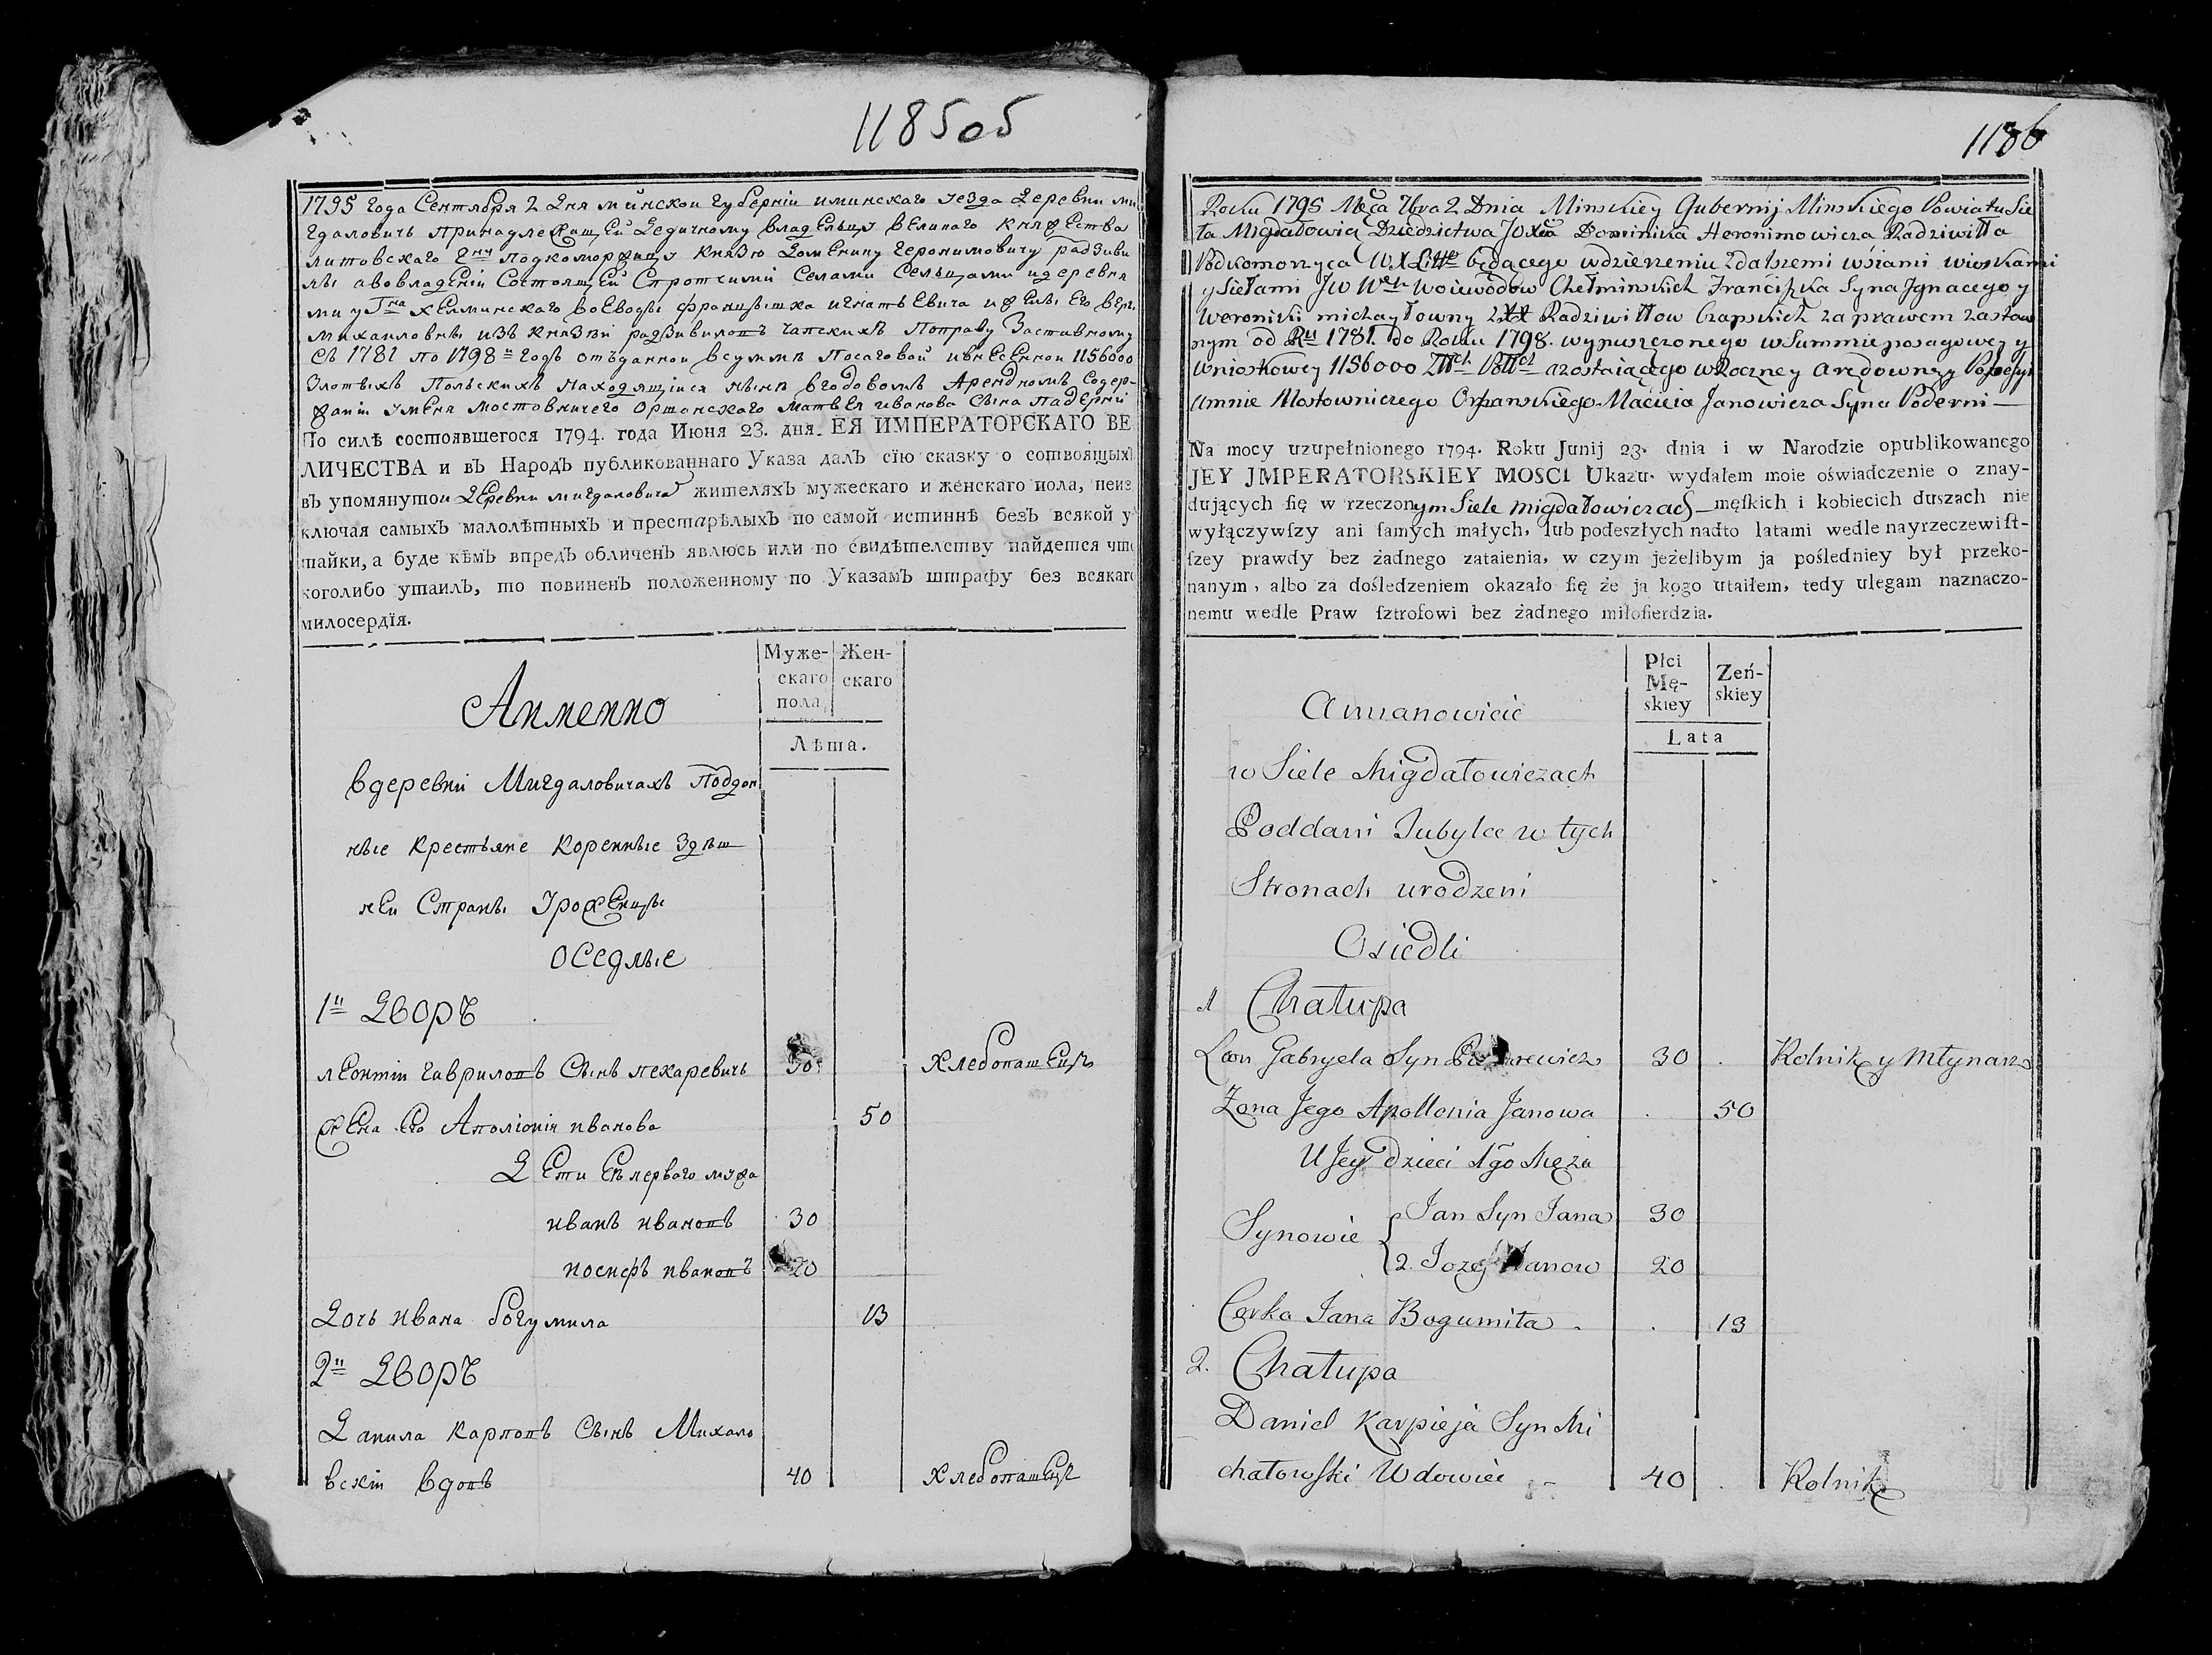 118505
1795 года Сентября 2 дня минскои губерніи иминскаго уезда деревни ми
гдаловичъ принадлежащей дедичному владельцу великаго княжества
литовскаго подкоморжицу князю доменику геронимовичу радзиви
лы авовладеніи Состоящей Спротчими Селами Сельцами идеревня
ми у хелминскаго воеводы францышка игнатьевича и жены его веро
михаиловны изъ князей радзивиловъ чапскихъ поправу Заставному
Съ 1781 по 1798 годъ отъданнои всумме посаговой ивнесеннои 1156000
Злотыхъ польскихъ находящіися ныне вгодовомъ Арендномъ Содер-
жаніи уменя мостовничего оршанскаго матвея иванова сына падерни
По силѣ состоявшегося 1794. года Июня 23. дня. ЕЯ ИМПЕРАТОРСКАГО ВЕ
ЛИЧЕСТВА и въ Народъ публикованнаго Указа далъ сїю сказку о сотвоящыхъ
въ упомянутои деревни мигдаловича жителяхъ мужескаго и женскаго пола, неиз
ключая самыхъ малолѣтныхъ и престарѣлыхъ по самой истиннѣ безъ всякой у
тайки, а буде кѣмъ впредъ обличенъ явлюсь или по свидѣтелству найдется что
коголибо утаилъ, то повиненъ положенному по Указамъ штрафу без всякаго
милосердїя.
Муже- Жен-
скаго скаго
пола
Лѣта.
Аименно
вдеревни Мигдаловичахъ Поддон
ные крестьяне коренные здѣш
неи Страны Урожены
оседлые
1й Дворъ
леонтіи гавриловъ Сынъ пекаревичъ 30 хлебопашецъ
жена его Аполіонія иванова 50
Дети Съ перваго мужа
иванъ ивановъ 30
иосифъ ивановъ 20
дочь ивана богумила 13
2й Дворъ
Данила карповъ Сынъ Михало
вскіи вдовъ 40 хлебопашецъ
1186
Roku 1795 Mca 7bra 2 Dnia Minskiey Gubernij Minskiego Powiatu Sie
ła Migdałowicz Dziedzictwa JO Xcia Dominika Heronimowicza Radziwiłła
Podkomorzyca W X Litte będącego wdzierzeniu zdalszemi wsiami wioskami
y Siełami Jw Woiewodow Chełminskich Franciszka Syna Jgnacego y
Weroniki michayłowny Radziwiłłow Czapskich zaprawem zastaw
nym od Ru 1781. do Roku 1798. wypuszczonego wSummie posagowey y
wnioskowey 1156000 azostaiącego wRoczney arędowney Possesyi
umnie Mostowniczego Orszanskiego Macieia Janowicza Syna Poderni
Na mocy uzupełnionego 1794. Roku Junij 23. dnia i w Narodzie opublikowanego
JEY JMPERATORSKIEY MOSCI Ukazu. wydałem moie oświadczenie o znay-
dujących ſię w rzeczonym Siele migdałowiczach męſkich i kobiecich duszach nie
wyłączywſzy ani ſamych małych, lub podeszłych nadto latami wedle nayrzeczewiſt-
ſzey prawdy bez żadnego zataienia, w czym jeżelibym ja poślednieу był przeko-
nanym, albo za dośledzeniem okazało ſię że ja kogo utaiłem, tedy ulegam naznaczo-
nemu wedle Praw ſztrofowi bez żadnego miłoſierdzia.
Płci Zeń-
Mę- skiey
skiey
Lata
Amianowicie
w Siele Migdałowiczach
Poddani Jubylce w tych
Stronach urodzeni
Osiedli
1 Chałupa
Leon Gabryela Syn 30 Rolnik y Młynarz
Zona Jego Apollonia Janowa 50
U Jey dzieci 1go Męża
Synowie { Jan Syn Jana 30
2. Jozef Janow 20
Corka Jana Bogumiła 13
2. Chałupa
Daniel Karpieja Syn Mi
chałowski Wdowiec 40 Rolnik